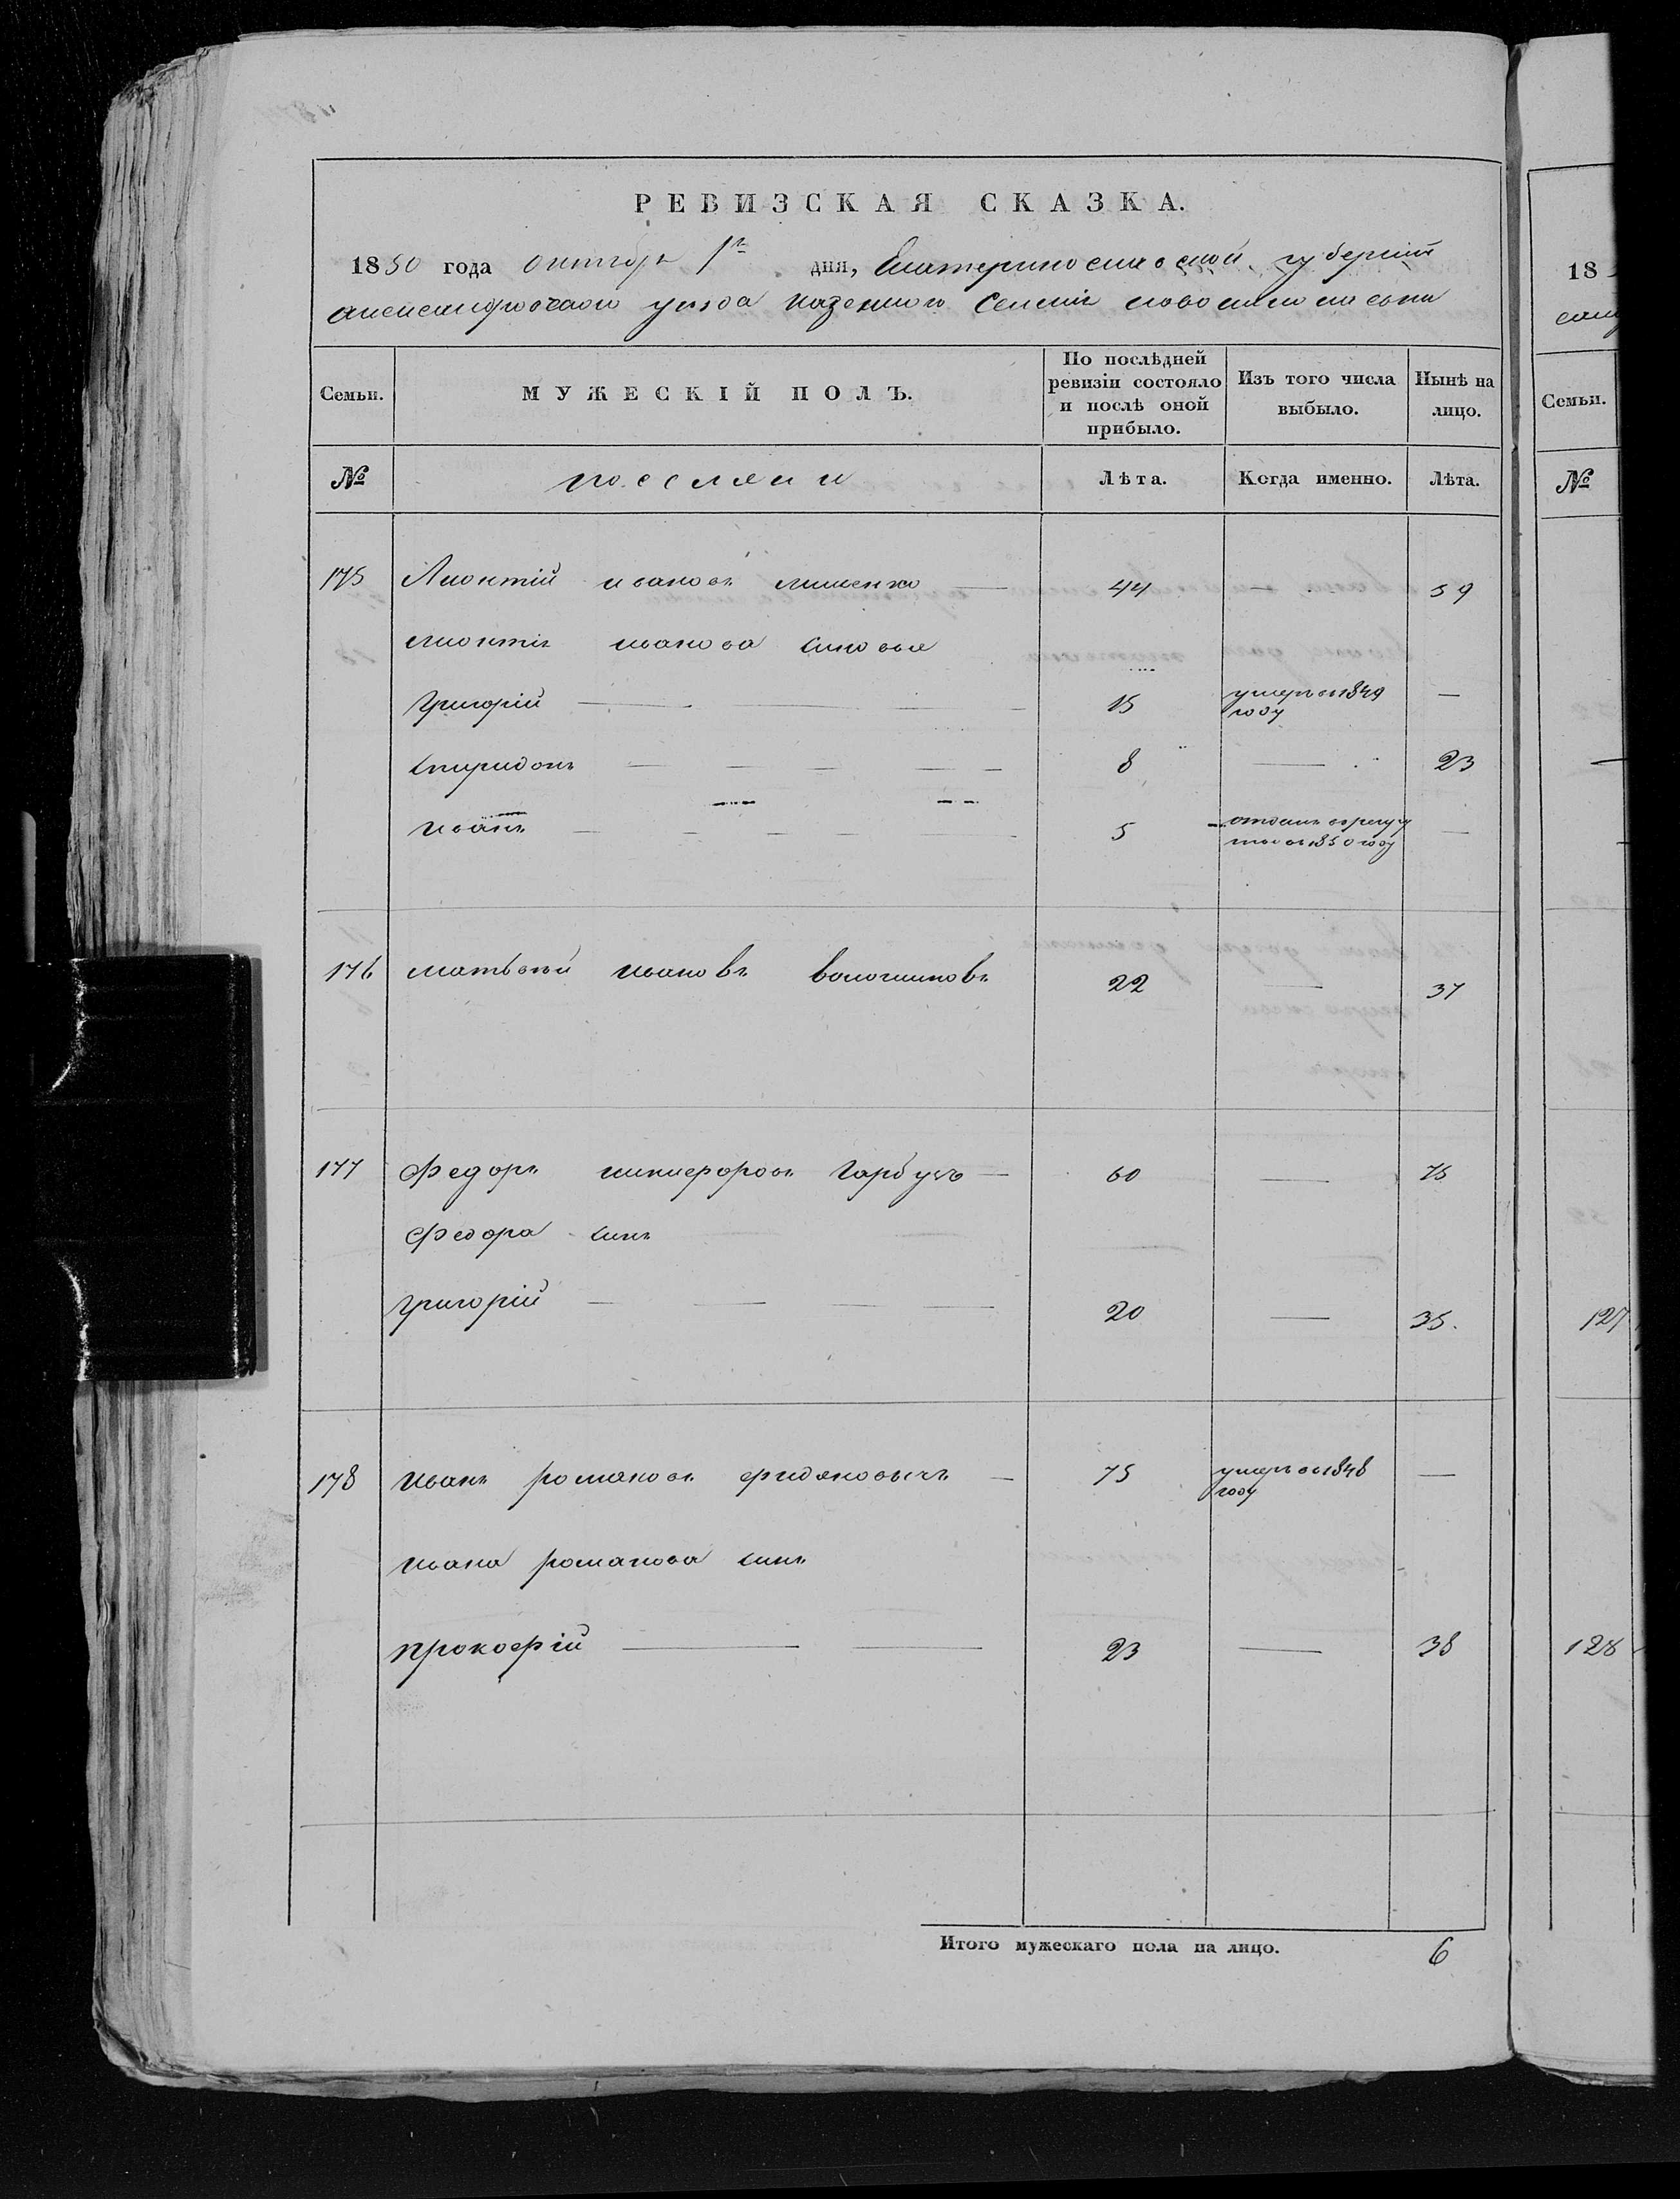 РЕВИЗСКАЯ СКАЗКА.
1850 года октября 1го дня, Екатеринославской губерніи
александровскаго уезда казенного селенія
Семьи.
МУЖЕСКІЙ ПОЛЪ.
По послѣдней ревизіи состояло и послѣ оной прибыло.
Изъ того числа выбыло.
Нынѣ на лицо.
№
поселяни
Лѣта.
Когда именно.
Лѣта.
175 Лионтій ивановъ 44 — 59
лионтія иванова синовья
Григорій — 15 умеръ въ 1849 году —
спиридонъ — 8 — 23
иванъ — 5 отданъ въ рекруты въ 1850 году —
176 матьвѣй ивановъ волошиновъ 22 — 37
177 Федоръ никифоровъ Гарбузъ — 60 — 75
Федора синъ
григорій — 20 — 35.
178 иванъ романовъ — 75 умеръ въ 1848 году —
ивана романова синъ
прокофій — 23 — 38
Итого мужескаго пола на лицо. 6
18
Семьи.
№
127
128